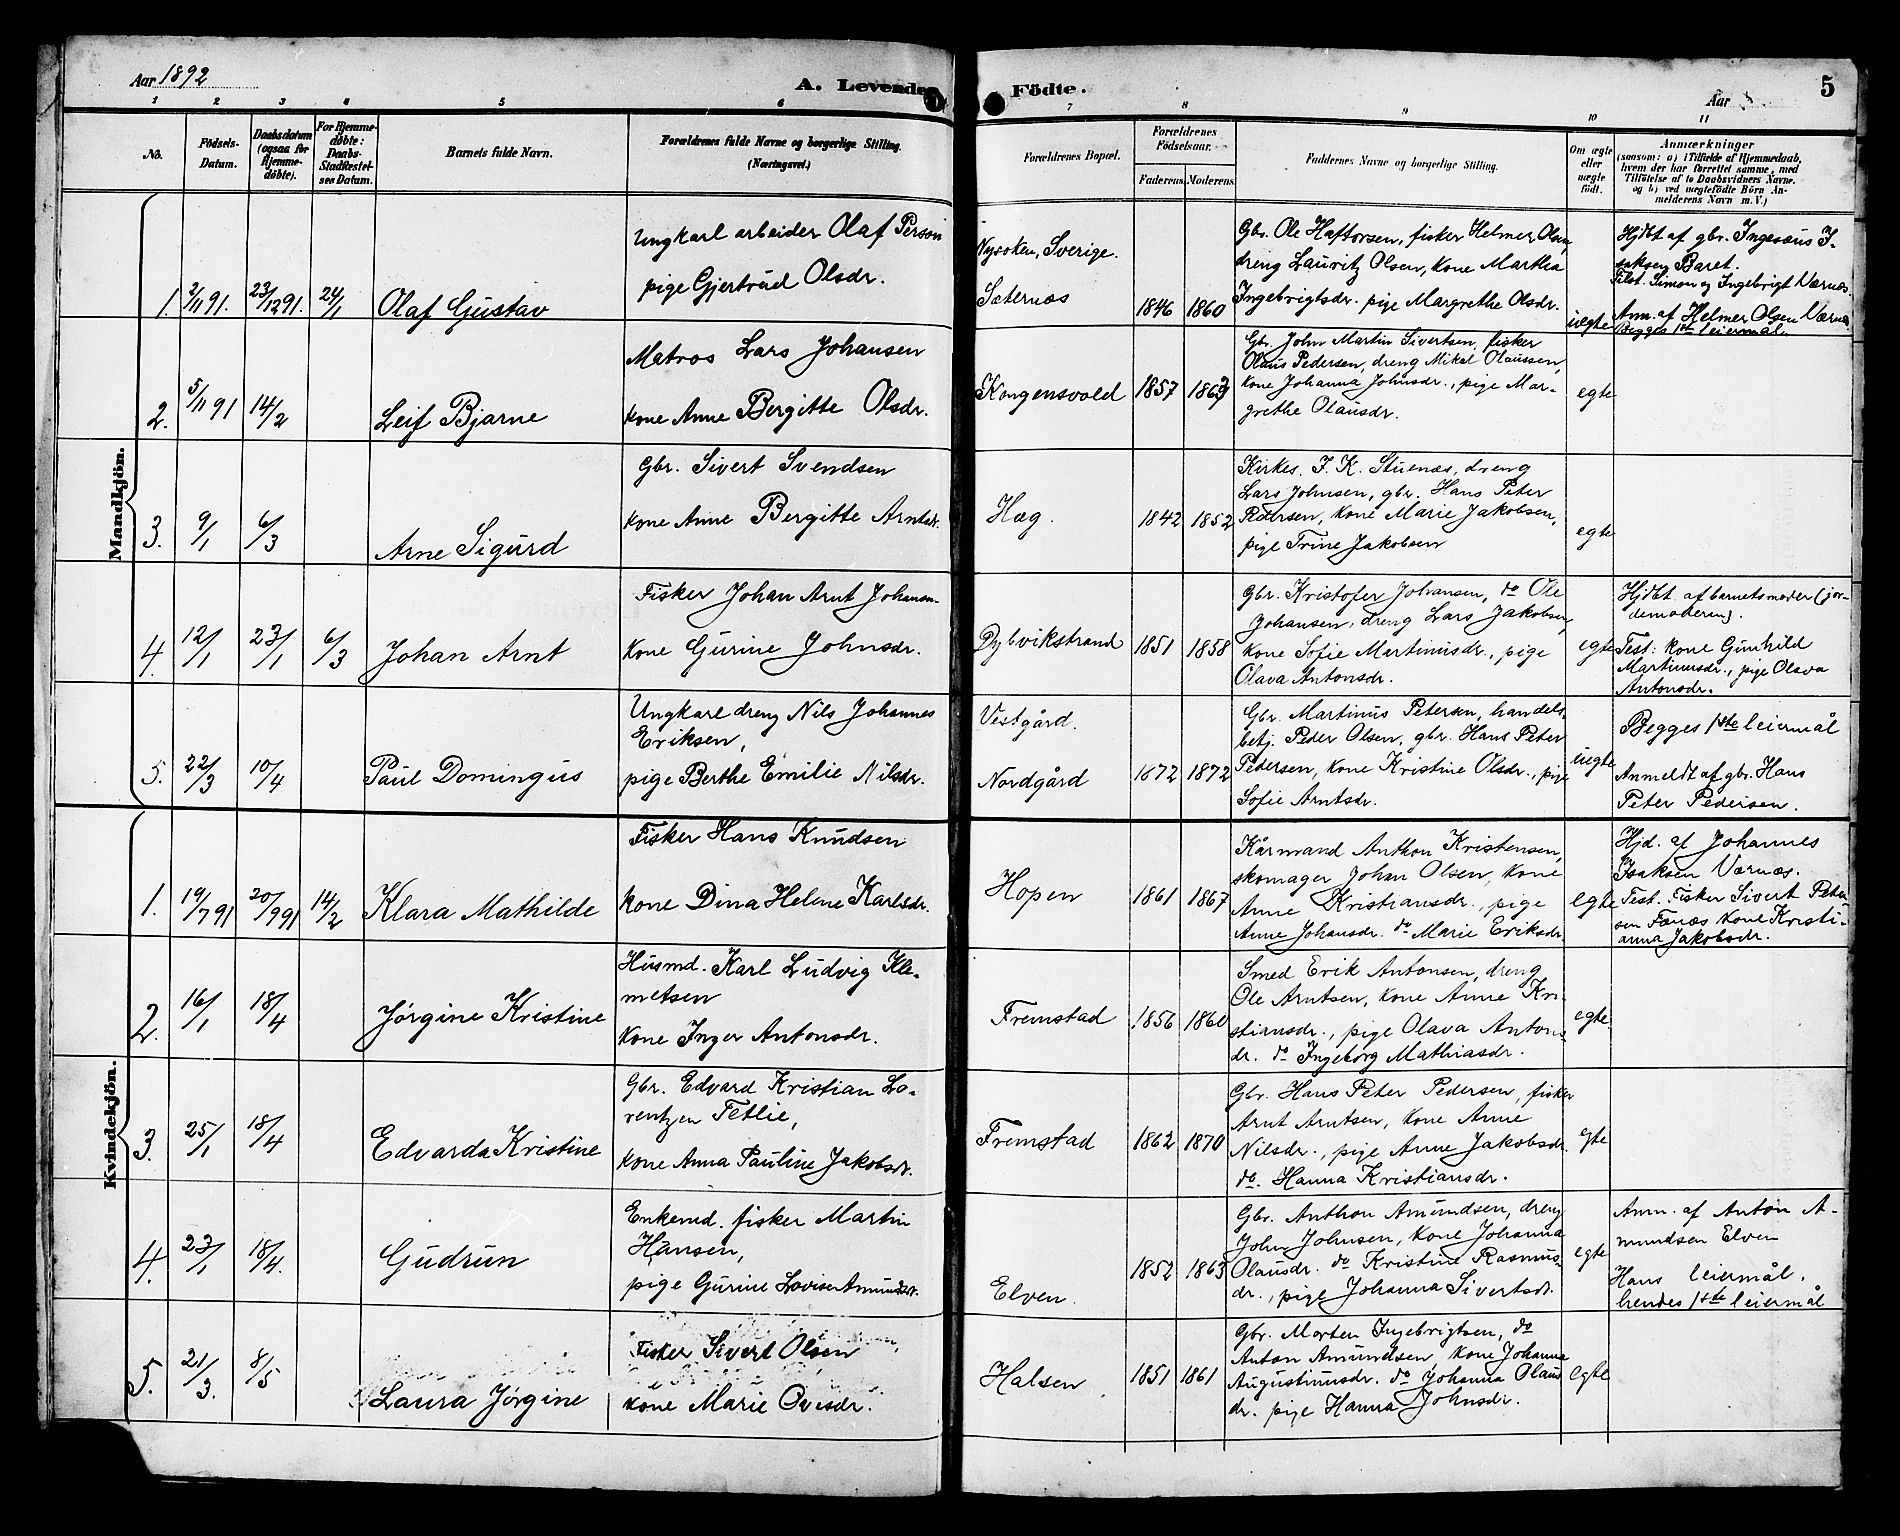 Aar 1892
A. Levende
Födte.
Aar
5
1 2 3 4 5 6
7 8 9 10 11
No.
Födsels-
Datum.
Daabsdatum
(ogsaa for
Hjemme-
døbte).
For Hjemme-
döbte:
Daabs-
Stadfæstel-
ses Datum.
Barnets fulde Navn.
Forældrenes fulde Navne og borgerlige Stilling.
(Næringsvei.)
Forældrenes Bopæl.
Forældrenes
Födselsaar.
Faderens. Moderens.
Faddernes Navne og borgerlige Stilling.
Om ægte
eller
uægte
født.
Anmærkninger
(saasom: a) i Tilfælde af Hjemmedaab,
hvem der har forrettet samme, med
Tilföielse af to Daabsvidners Navne.
og b) ved uægtefödte Börn An-
melderens Navn m. V.)
Mandkjön.
1. 2/11 91. 23/12 91. 24/1 Olaf Gustav
Ungkarl arbeider Olaf Person
pige Gjertrud Olsdr.
Nysoken, Sverige.
Sæternæs
1846 1860
Gbr. Ole Haftorsen, fisker Helmer Olsen,
dreng Lauritz Olsen, kone Martha
Ingebrigtsdr. pige Margrethe Olsdr.
uegte
Hjdbt af gbr. Ingesæus I-
saksen Baret.
Tilst. Simon og Ingebrigt Værnæs.
Anm. af Helmer Olsen Værnæs
Begges 1ste leiermål.
2. 5/11 91 14/2 Leif Bjarne
Matros Lars Johansen
kone Anne Bergitte Olsdr.
Kongensvold 1857 1863
Gbr. John Martin Sivertsen, fisker
Olaus Pedersen, dreng Mikal Olaussen,
kone Johanna Johnsdr., pige Mar-
grethe Olausdr.
egte
3. 9/1 6/3 Arne Sigurd
Gbr. Sivert Svendsen
kone Anne Bergitte Arntsdr.
Hæg. 1842 1852
Kirkes. J. K. Stuenæs, dreng
Lars Johnsen, gbr. Hans Peter
Pedersen, kone Marie Jakobsen,
pige Trine Jakobsen
egte
4. 12/1 23/1 6/3 Johan Arnt
Fisker Johan Arnt Johansen
kone Gurine Johnsdr.
Dybvikstrand 1851 1858
Gbr. Kristofer Johansen, do Ole
Johansen, dreng Lars Jakobsen,
kone Sofie Martinusdr., pige
Olava Antonsdr.
egte
Hjdbt af barnets moder (jor-
demoderen).
Test: kone Gunhild
Martinusdr., pige Olava
Antonsdr.
5. 22/3 10/4 Paul Domingus
Ungkarl dreng Nils Johannes
Eriksen,
pige Berthe Emilie Nilsdr.
Vestgård.
Nordgård 1872 1872
Gbr. Martinus Petersen, handels-
betj. Peder Olsen, gbr. Hans Peter
Pedersen, kone Kristine Olsdr., pige
Sofie Arntsdr.
uegte
Begges 1ste leiermål
Anmeldt af gbr. Hans
Peter Pedersen.
Kvindekjön.
1. 19/7 91 20/9 91 14/2 Klara Mathilde
Fisker Hans Knudsen
kone Dina Helene Karlsdr.
Hopen 1861 1867
Kårmand Anthon Kristensen,
skomager Johan Olsen, kone
Anne Kristiansdr., pige
Anne Johansdr. do Marie Eriksdr.
egte
Hjd. af Johannes
Isaksen Værnæs.
Test. Fisker Sivert Peter-
sen Fanæs kone Kristi-
anna Jakobsdr.
2. 16/1 18/4 Jørgine Kristine
Husmd. Karl Ludvig Kle-
metsen
kone Inger Antonsdr.
Fremstad 1856 1860
Smed Erik Antonsen, dreng
Ole Arntsen, kone Anne Kri-
stiansdr., pige Olava Antons-
dr. do Ingeborg Mathiasdr.
egte.
3. 25/1 18/4 Edvarda Kristine
Gbr. Edvard Kristian Lo-
rentzen Tetlie,
kone Anna Pauline Jakobsdr.
Fremstad 1862 1870
Gbr. Hans Peter Pedersen, fisker
Arnt Arntsen, kone Anne
Nilsdr., pige Anne Jakobsdr.
do. Hanna Kristiansdr.
egte
4. 23/1 18/4. Gudrun
Enkemd. fisker Martin
Hansen,
pige Gurine Lovise Amundsdr.
Elven. 1852 1863
Gbr. Anthon Amundsen, dreng
John Johnsen, kone Johanna
Olausdr. do Kristine Rasmus-
dr., pige Johanna Sivertsdr.
egte
Anm. af Anton A-
mundsen Elven
Hans leiermål.
hendes 1ste leiermål
5. 21/3. 8/5 Laura Jørgine
Fisker Sivert Olsen
kone Marie Ovesdr.
Halsen 1851 1861
Gbr. Morten Ingebrigtsen, do
Anton Amundsen, kone Johanna
Augustinusdr. do Johanna Olaus
dr. pige Hanna Johnsdr.
egte